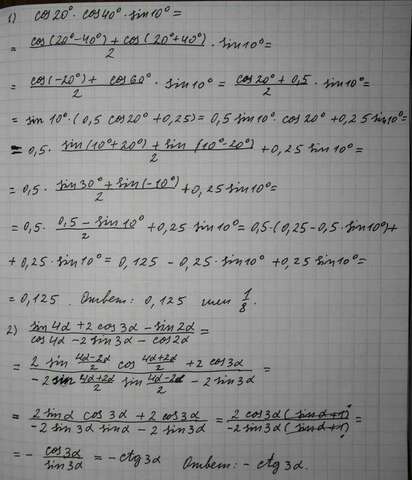 1) cos20°·cos40°·sin10°=
= (cos(20°-40°)+cos(20°+40°))/2 · sin10°=
= (cos(-20°)+cos60°)/2 · sin10° = (cos20°+0,5)/2 · sin10°=
= sin10°·(0,5 cos20°+0,25)=0,5 sin10°·cos20°+0,25 sin10°=
= 0,5· (sin(10°+20°)+sin(10°-20°))/2 +0,25 sin10°=
= 0,5· (sin30°+sin(-10°))/2 +0,25 sin10°=
= 0,5· (0,5-sin10°)/2 +0,25 sin10°=0,5·(0,25-0,5·sin10°)+
+0,25·sin10°= 0,125 - 0,25·sin10° +0,25 sin10°=
= 0,125. Ответ: 0,125 или 1/8.
2) (sin4α+2cos3α-sin2α)/(cos4α-2sin3α-cos2α) =
= (2 sin (4α-2α)/2 cos (4α+2α)/2 +2cos3α)/(-2 sin (4α+2α)/2 sin (4α-2α)/2 -2sin3α) =
= (2sinα cos3α+2cos3α)/(-2sin3α sinα-2sin3α) = (2cos3α(sinα+1))/(-2sin3α(sinα+1)) =
= - cos3α/sin3α = -ctg3α Ответ: -ctg3α.